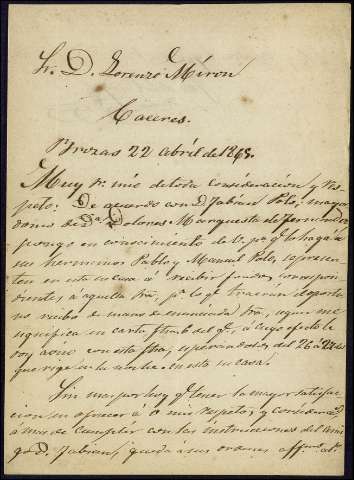 Sr. D. Lorenzo Miron
Caceres.
Brozas 22 Abril de 1865.
Muy Sr. mio de toda consideracion y res-
peto: De acuerdo con D. Fabian Polo, mayor
domo de Da. Dolores Marquesa de
pongo en conocimiento de V. pa. qe. lo haga á
sus hermanos Pablo y Manuel Polo, se presen-
ten en esta su casa á recibir fondos correspon-
dientes á aquella Sra., pa. lo qe. traerán
recibo de mano de enunciada Sra, segun me
significa en carta fha. 6 del qe. á cuyo efecto le
doy aviso con esta fha, esperandolos del 26 al 27 del
que rige en la noche en esta su casa.
Sin mas por hoy qe. tener la mayor satisfac-
cion en ofrecer á V. mis respetos, y consideracion
á mas de cumplir con las instrucciones del ami-
go D. Fabian, queda á sus ordenes affmo.